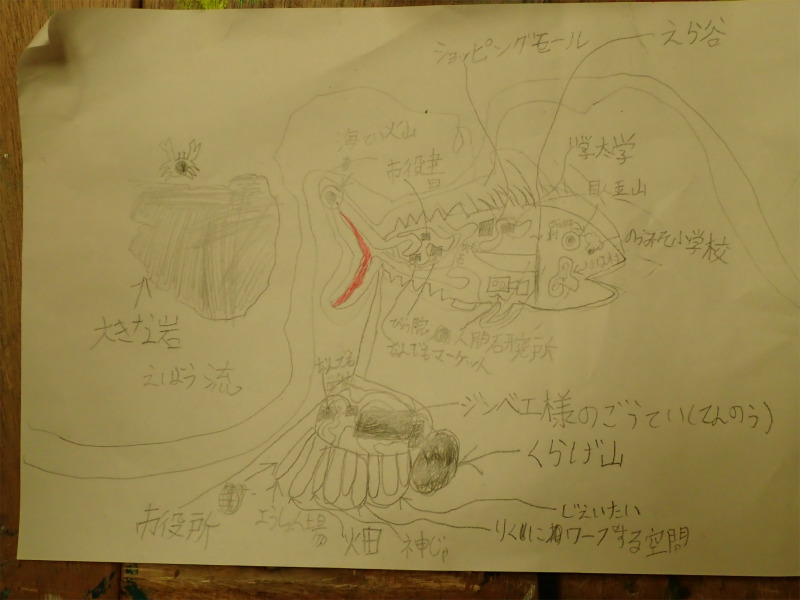 ショッピングモール
えら谷
海てい火山
市役書
学大学
目玉山
のうみそ小学校
びょう院
人間石研究所
なんでもマーケット
大きな岩
えほう流
ジンベエ様のごうてい(てんのう)
くらげ山
じえいたい
りくに ワープする空間
市役所
ようしょく場
畑
神じゃ